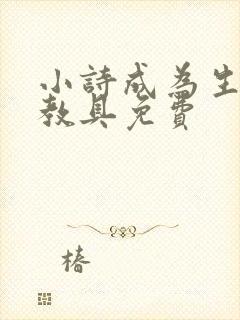 小詩成為生
教具免費
椿